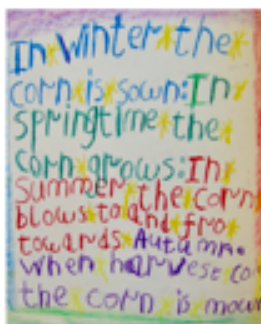 In winter the
corn is sown: In
springtime the
corn grows: In
Summer the corn
blows to and fro
towards Autumn.
when harvest co
the corn is mow